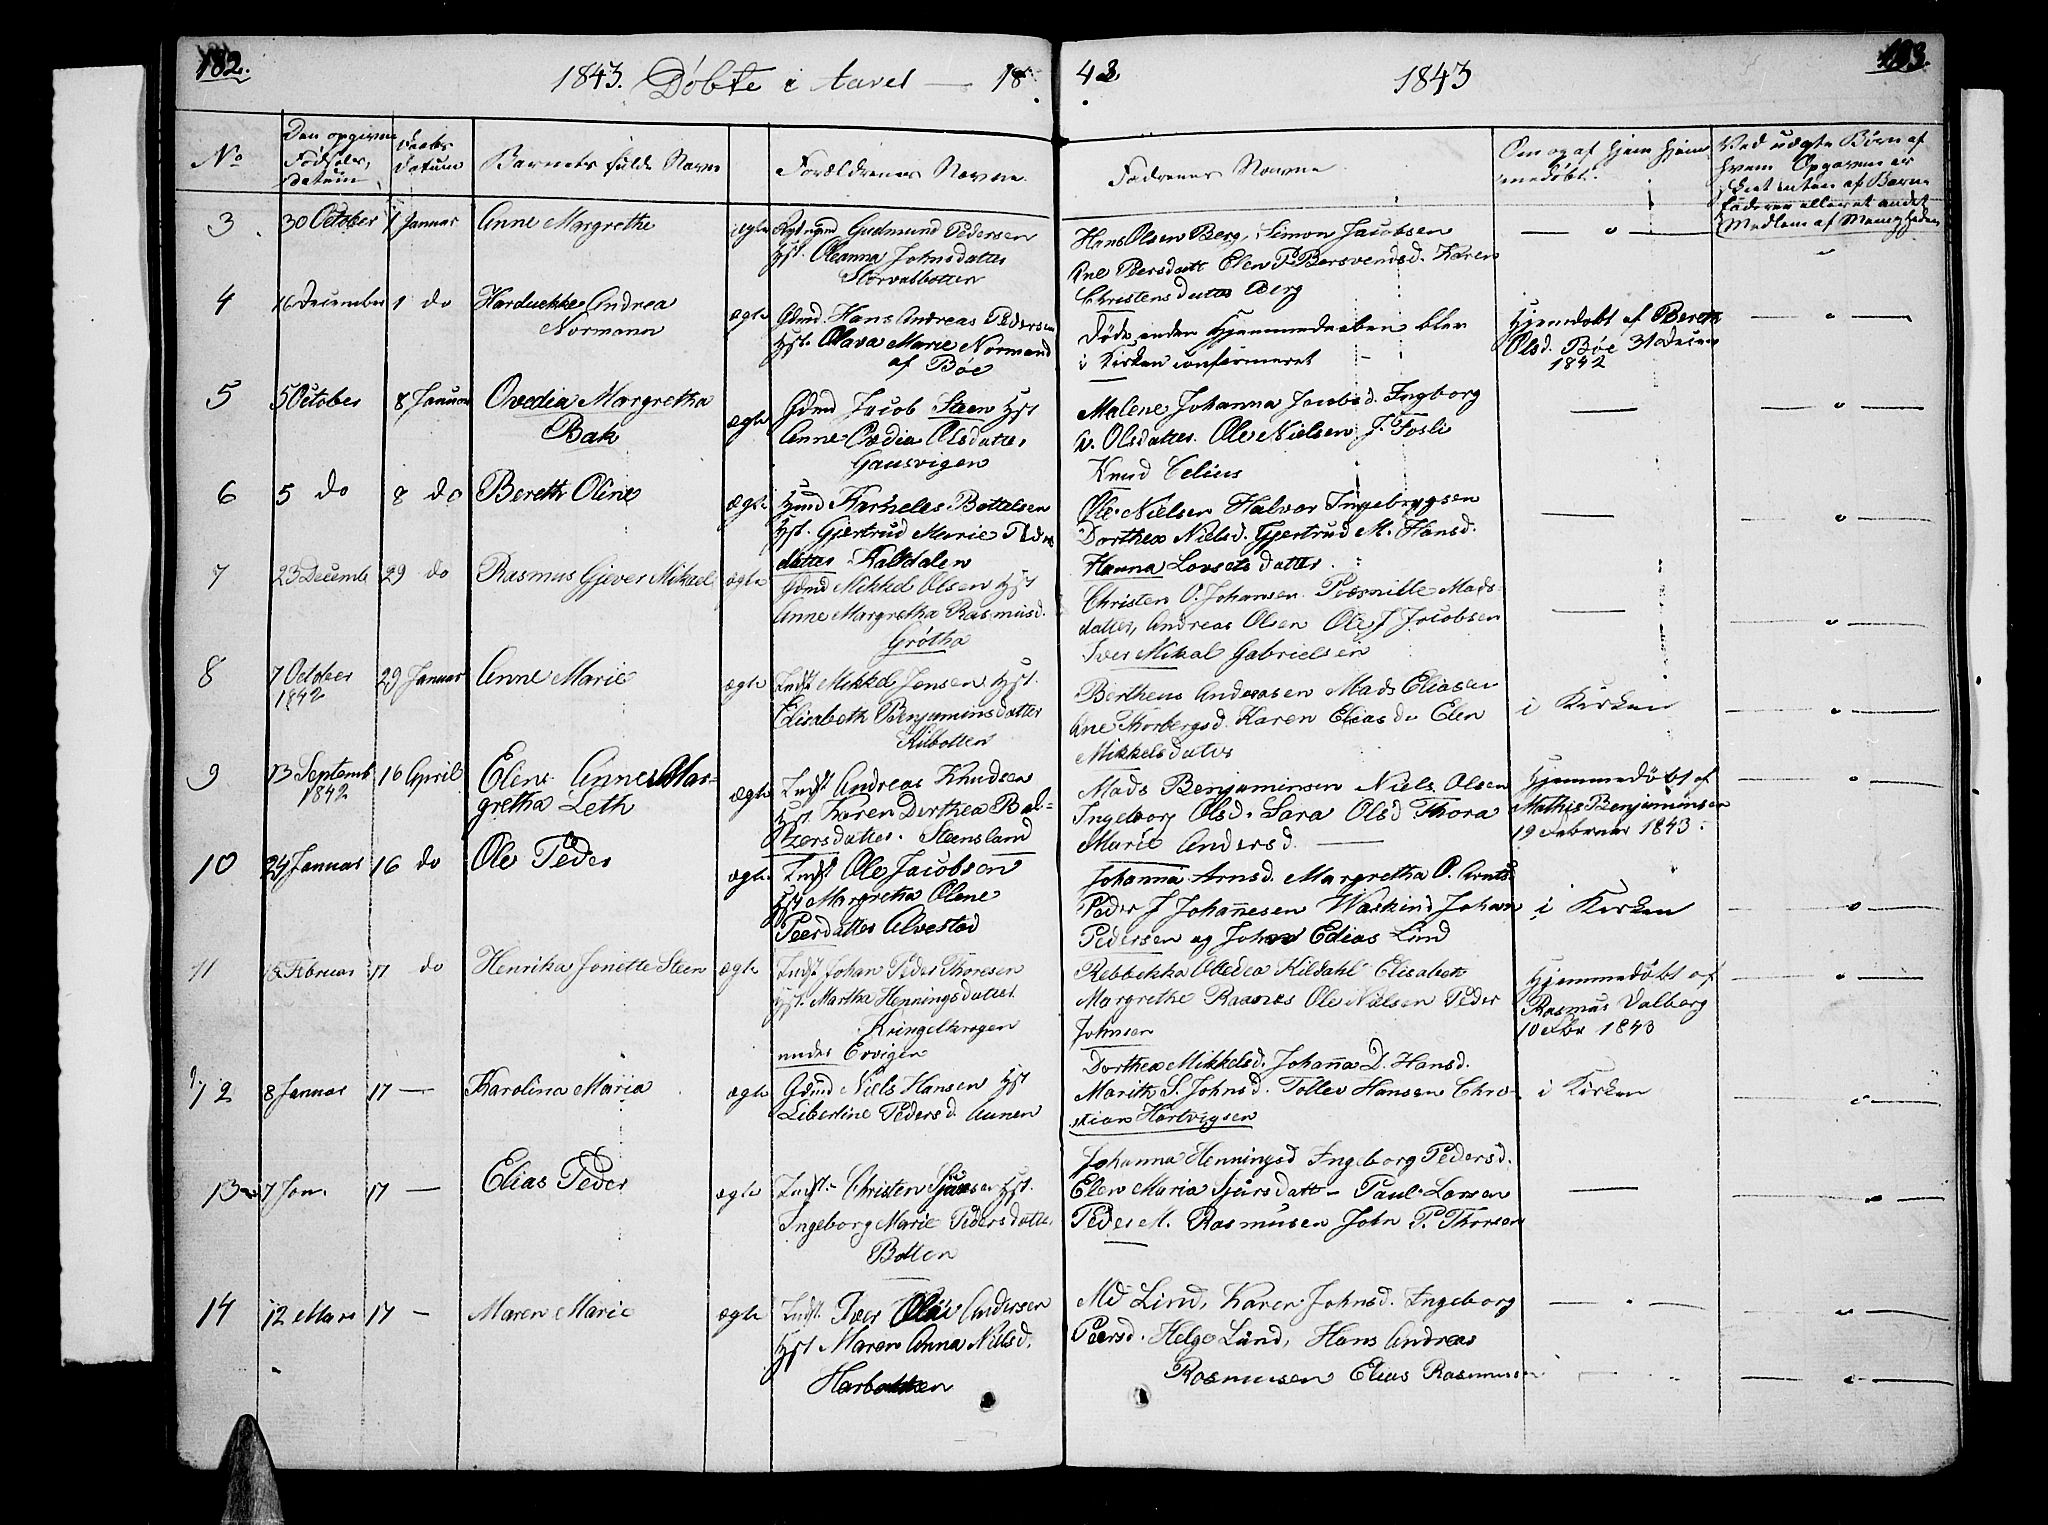 182.
183.
1843. Døbte i Aaret — 18
43
1843
No
Den opgivne Fødsels, datum
Daabs Datum
Barnets fulde Navn
Forældrenes Navne
Fadrenes Navne
Om og af hjem hjem
medøbt.
Ved uægte Børn af
hvem Opgaven er
skeet enten af Barne
faderen eller et andet
Medlem af Menigheden
3 30 October 1 Januar Anne Margrethe ægte Gudmund Pedersen
Hst. Oleanna Johnsdatter
Storvasbotten
Hans Olsen Berg, Simon Jacobsen
Ane Peersdatt Elen P. Bersvendsd. Karen
Christensdatter Berg
4 16 December 1 do Andrea
Normann
ægte Gdmd. Hans Andreas Pedersen
Hst. Olava Marie Normand
af Bøe
Døde, anden Hjemmedaaben blev
i Kirken confirmeret
Hjemdøbt af Bereth
Olsd. Bøe 31 Decem
1842
5 5 October 8 Januar Ovedia Margretha
Bak
ægte Gdmd Jacob Steen Hst
Anne Ovedia Olsdatter
Gausvigen
Malene Johanna Jacobsd. Ingborg
A. Olsdatter. Ole Nielsen J. Fosli
Knud Celius
6 5 do 8 do Bereth Oline ægte Hmd Karneles Bottelsen
Hst. Gjertrud Marie Peders
datter Kaldalen
Ole Nielsen Halvor Ingebrygsen
Dorthea Nielsd. Gjertrud M. Hansd.
Hanna datter.
7 23 Decemb 29 do Rasmus Gjever Mikael ægte Gdmd Mikkel Olsen Hst
Anne Margretha Rasmusd.
Grøtha
Christen O. Johansen Pernille Mads
datter, Andreas Olsen Ole J Jacobsen
Iver Mikal Gabrielsen
8 7 October
1842
29 Januar Anne Marie ægte Indst Mikkel Jensen Hst.
Elisabeth Benjaminsdatter
Kilbotten
Bertheus Andreasen Mads Eliasen
Ane Thorbergsd. Karen Eliasd. Elen
Mikkelsdatter
i Kirken
9 13 Septemb
1842
16 April Elen Anne Mar-
gretha Leth
ægte Indst Andreas Knudsen
Hst Karen Dorthea Bal-
tzersdatter. Steensland
Mads Benjaminsen Niels Olsen
Ingeborg Olsd. Sara Olsd Thora
Marie Andersd.
Hjemmedøbt af
Mathis Benjaminsen
19 Februar 1843.
10 24 Januar 16 do Ole Peder ægte Indst Ole Jacobsen
Hst Margretha Olene
Peersdatter Alvestad
Johanna Arnsd. Margretha P. Arnts
Peder J Johannesen Johan
Pedersen og Johan Edias Lind
i Kirken
11 18 Februar 17 do Henrika Jonette Steen ægte Indst Johan Peder Thoresen
Hst. Martha Henningsdatter
Kringelkrogen
under Ervigen
Rebbekka Ottedea Kildahl Elisabeth
Margrethe Raanes Ole Nielsen Peder
Johnsen
Hjemmedøbt af
Rasmus Valborg
10 Fbr 1843
12 8 Januar 17 — Karolina Maria ægte Gdmd Niels Hansen Hst
Libertine Pedersd Aunen
Dorthea Mikkelsd. Johanna D. Hansd.
Marith S. Johnsd. Tollev Hansen Chri-
stian Hartvigsen
i Kirken
13 7 Jan. 17 — Elias Peder ægte Indst. Christen Sjursen Hst.
Ingeborg Marie Pedersdatter
Botten
Johanna Henningsd Ingeborg Pedersd.
Elen Maria Sjursdatt — Paul Larsen
Peder M. Rasmusen John P. Thorsen
14 12 Mars 17 — Maren Marie ægte Indst. Iver Olai Andersen
Hst Maren Anna Nilsd.
Harbakken
Md Lind, Karen Johnsd. Ingeborg
Peersd. Helge Lund, Hans Andreas
Rasmusen Elias Rasmusen